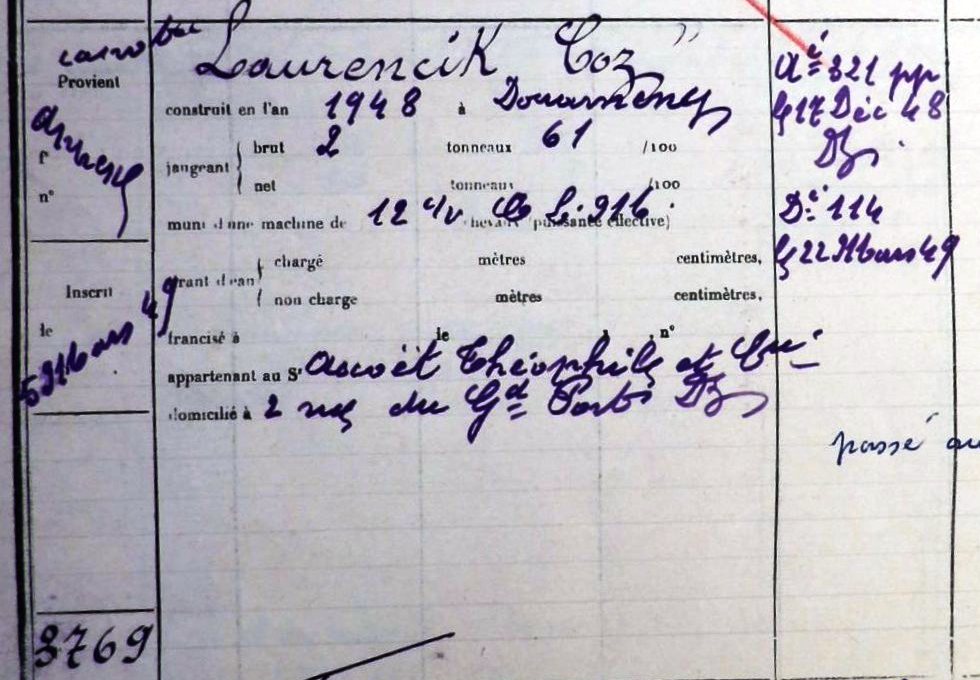 canot
Provient
f°
n°
Inscrit
le
5 Mars 49
3769
Laurencik Coz "
construit en l'an 1948 à Douarnenez
jaugeant brut 2 tonneaux 61 /100
net tonneaux /100
muni d'une machine de 12 c/v chevaux (puissance effective)
tirant d'eau chargé mètres centimètres,
non chargé mètres centimètres,
francisé à le n°
appartenant au Sr Théophile et
domicilié à 2 rue du Gd Port Dz
Aé 321 pp
G 17 Déc 48
Dz.
Dé 114
G 22 Mars 49
passé au